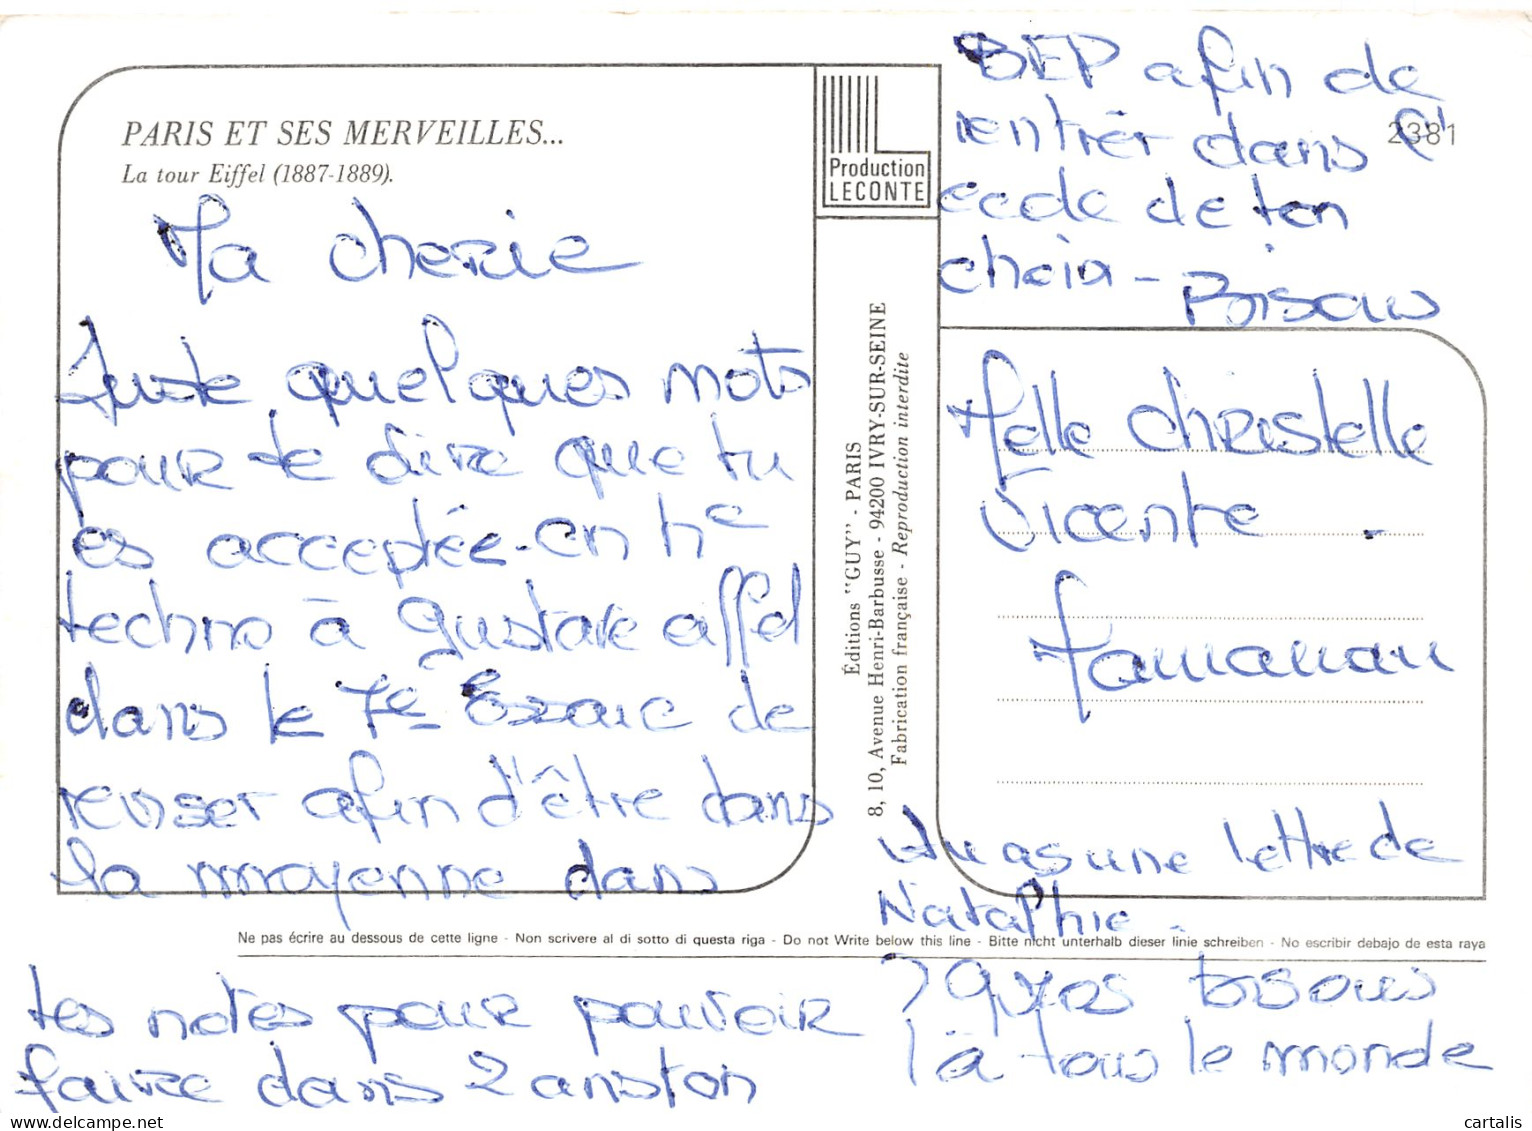 PARIS ET SES MERVEILLES...
La tour Eiffel (1887-1889).
Ma cherie
Juste quelques mots
pour te dire que tu
es acceptée en
techno à gustave eiffel
dans le 7e de
reviser afin d'être dans
la moyenne dans
tes notes pour pouvoir
faire dans 2 ans ton
BEP afin de
rentrer dans l'
ecole de ton
choix - Bisous
2381
Production
LECONTE
Éditions "GUY" - PARIS
8, 10, Avenue Henri-Barbusse - 94200 IVRY-SUR-SEINE
Fabrication française - Reproduction interdite
Melle Christelle
Vicente
tu as une lettre de
Nataphie.
Ne pas écrire au dessous de cette ligne - Non scrivere al di sotto di questa riga - Do not Write below this line - Bitte nicht unterhalb dieser linie schreiben - No escribir debajo de esta raya
gros bisous
à tous le monde
cartalis